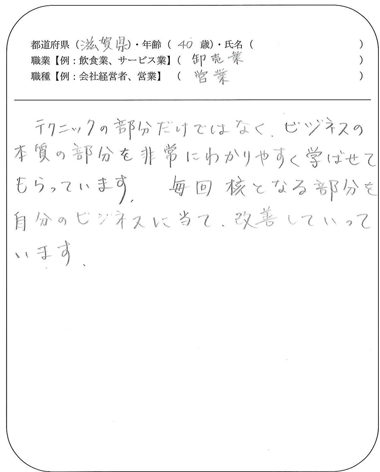 都道府県（滋賀県）・年齢（ 40 歳）・氏名（　　　　　　）
職業【例：飲食業、サービス業】（ 卸売業　　　　　　）
職種【例：会社経営者、営業】（ 営業　　　　　　）
テクニックの部分だけではなく、ビジネスの
本質の部分を非常にわかりやすく学ばせて
もらっています。 毎回核となる部分を
自分のビジネスに当て、改善していって
います。